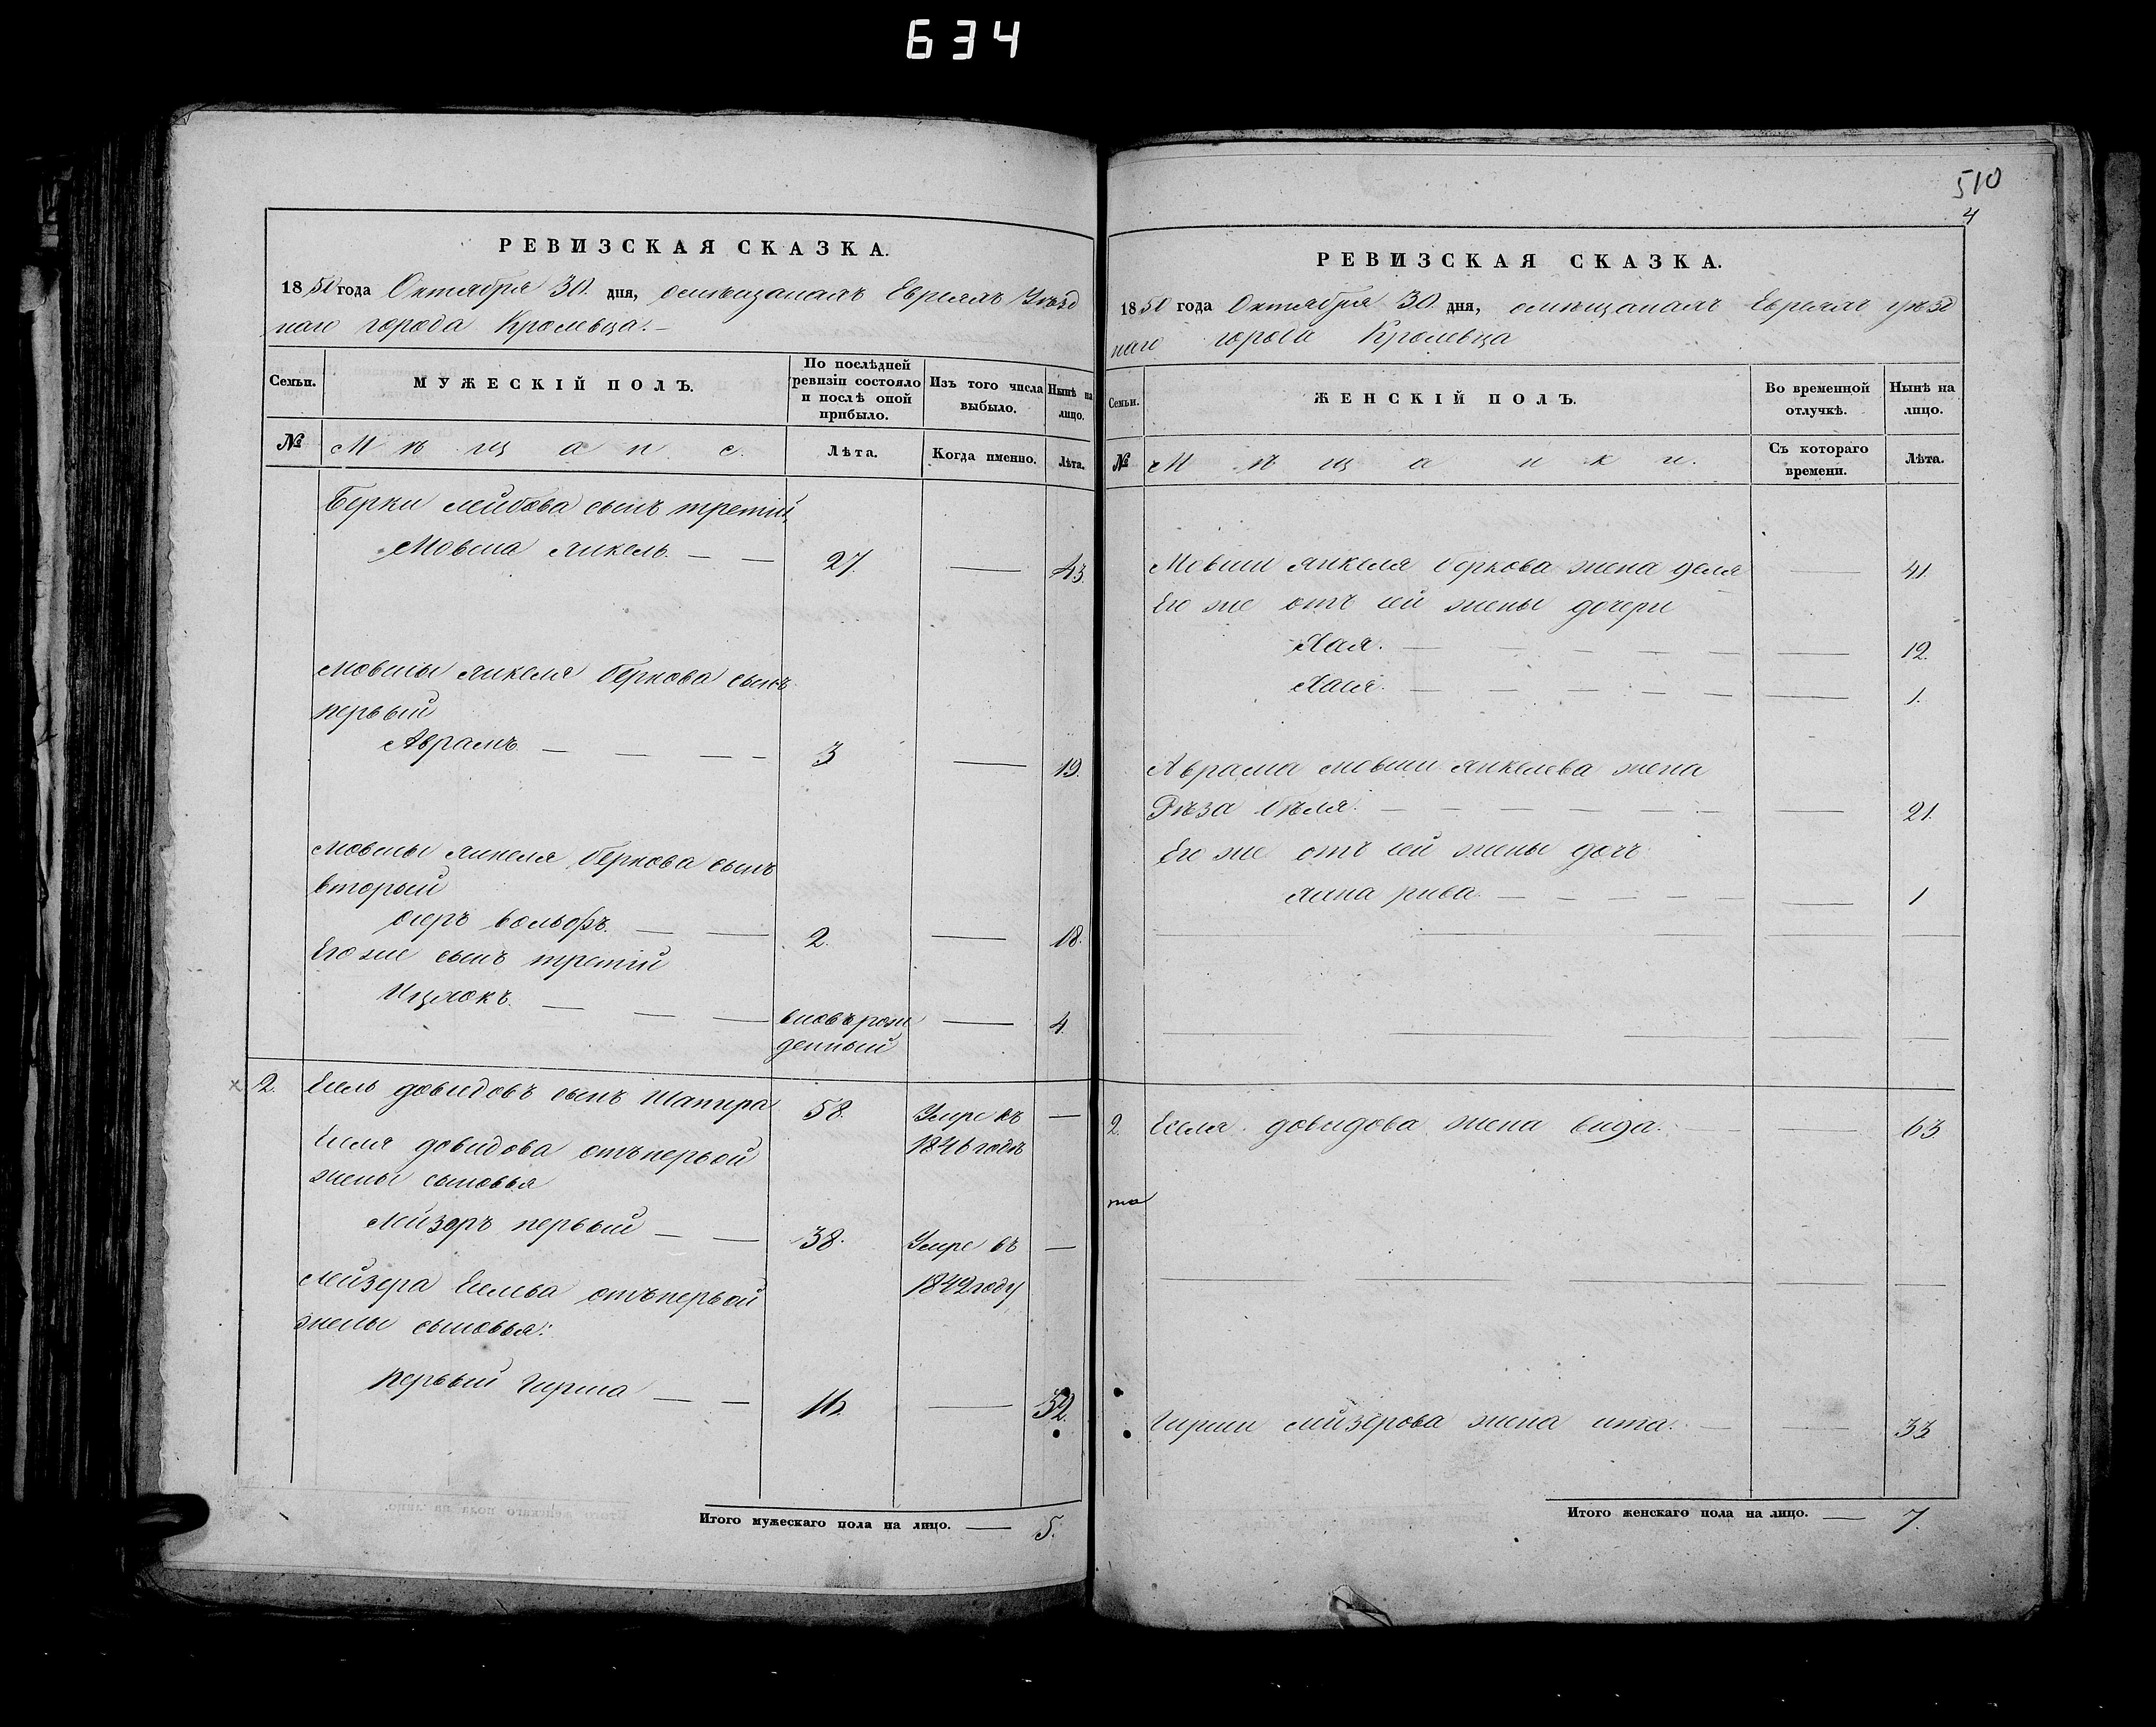 634
РЕВИЗСКАЯ СКАЗКА.
1850 года Октября 30. дня, омѣщанахъ Евреяхъ Уѣзд
наго города Кролевца.
Семьи.
МУЖЕСКІЙ ПОЛЪ.
По послѣдней
ревизіи состояло
и послѣ оной
прибыло.
Изъ того числа
выбыло.
Нынѣ на
лицо.
№
Мѣщане.
Лѣта.
Когда именно.
Лѣта.
Берки лейбова сынъ третій,
Мовша Янкель. 27. — 43.
Мовшы Янкеля беркова сынъ
первый
Аврамъ 3 — 19.
Мовшы Янкеля беркова сынъ
вторый
вольфъ. 2. — 18.
Его же сынъ третій
Ицхокъ. вновърож — 4.
денный
2. Есель довидовъ сынъ Шапира 58. Умре въ —
1846 годѣ
Еселя довидова отъ первой
жены сыновья
Лейзеръ первый 38. Умре въ —
1849 году
Лейзера Еселева отъ первой
жены сыновья:
первый Гирша 16. — 32.
Итого мужескаго пола на лицо. — 5.
510
4
РЕВИЗСКАЯ СКАЗКА.
1850 года Октября 30. дня, омѣщанахъ Евреяхъ уѣзд
наго города Кролевца
Семьи.
ЖЕНСКІЙ ПОЛЪ.
Во временной
отлучкѣ.
Нынѣ на
лицо.
№
Мѣщанки.
Съ котораго
времени.
Лѣта.
Мовши Янкеля беркова жена — 41.
Его же отъ сей жены дочери
Хая. — 12.
Хася. — 1.
Аврама мовши Янкелева жена
Рѣза бѣля. — 21.
Его же отъ сей жены дочь
рива. — 1
2. Еселя довидова жена вида. — 63.
Гирши лейзерова жена ита. — 33
Итого женскаго пола на лицо. — 7.